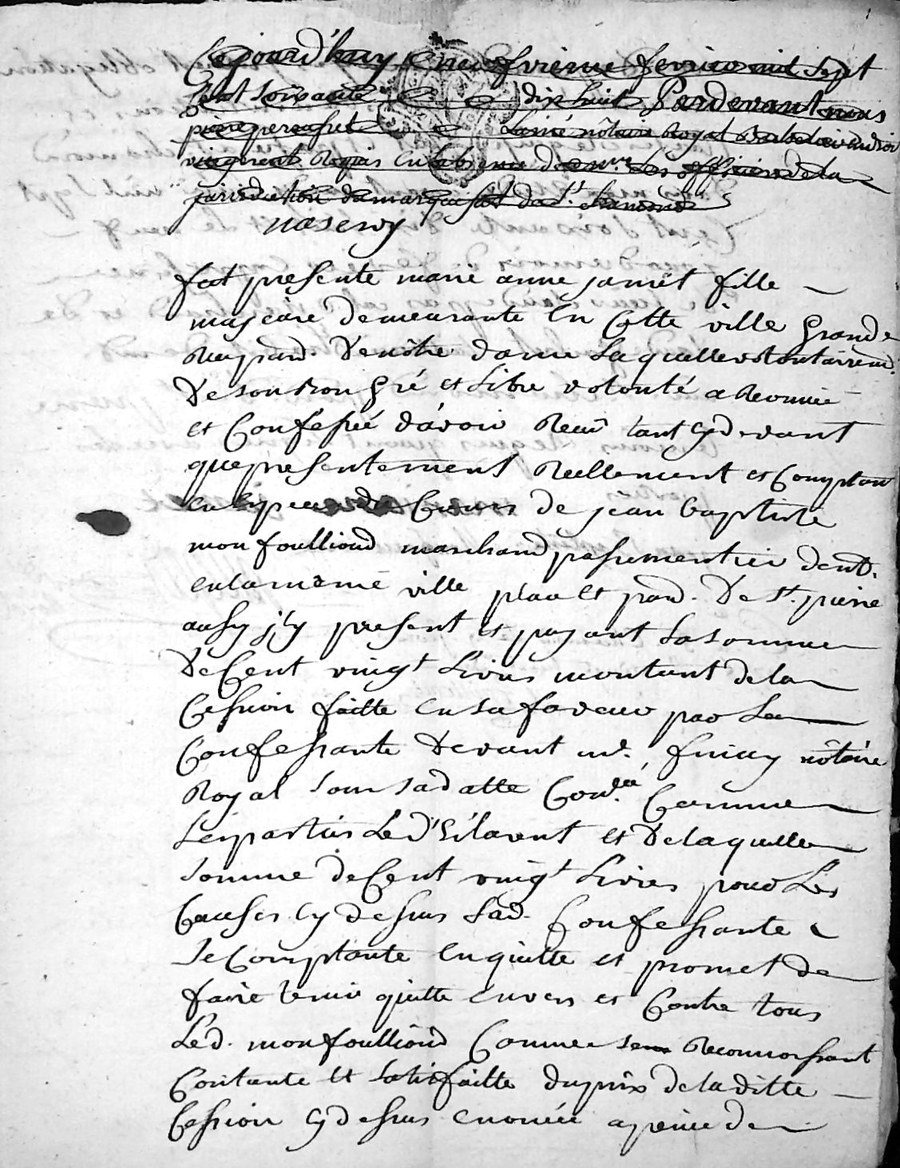 Cejourd'huy neufvieme fevrier mil sept
cent soixante dix huit Pardevant nous
pierre perrusset Lainé nôtaire Royal
Royal en de mrs. Les officiers de la
jurisdiction de marquisat de st. chamond

fut presente marie anne jamet fille
majeure demeurante en Cette ville Grande
Rue par. de nôtre dame Laquelle volontairemt.
de son bon Gré et Libre volonté a Reconnue
et Confessée d'avoir Reçu tant cy devant
que presentement Reellement et Comptant
en especes de Cours de jean baptiste
monfoullioud marchand passementier demt.
en la meme ville place et par. de st. pierre
aussy icy present et payant La somme
de Cent vingt Livres montant de la
Cession faitte en sa faveur par La
Confessante devant me. finiay nôtaire
Royal sous sa datte Comme
Les parties Le d'Eclarent et de laquelle
somme de Cent vingt Livres pour Les
Causes cy dessus Lad. Confessante
se Comptante en quitte et promet de
faire tenir quitte envers et Contre tous
Led. monfoullioud Comme se Reconnoissant
Contante et satisfaitte du prix de la ditte
Cession cy dessus enoncée a peine de